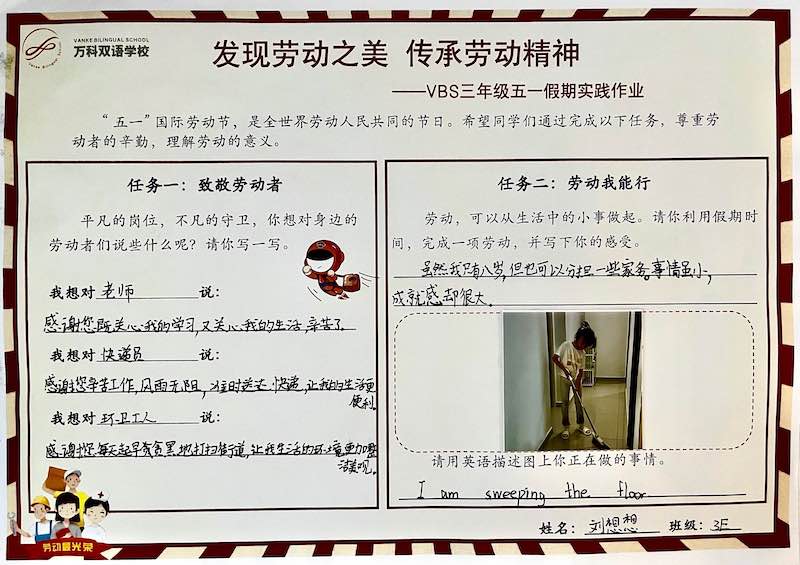 VANKE BILINGUAL SCHOOL
万科双语学校
发现劳动之美 传承劳动精神
——VBS三年级五一假期实践作业
“五一”国际劳动节，是全世界劳动人民共同的节日。希望同学们通过完成以下任务，尊重劳
动者的辛勤，理解劳动的意义。
任务一：致敬劳动者
平凡的岗位，不凡的守卫，你想对身边的
劳动者们说些什么呢？请你写一写。
我想对 老师 说：
感谢您既关心我的学习，又关心我的生活，辛苦了。
我想对 快递员 说：
感谢您辛苦工作，风雨无阻，准时送达快递，让我的生活更
便利。
我想对 环卫工人 说：
感谢您每天起早贪黑地打扫街道，让我生活的环境更加
美观。
劳动最光荣
任务二：劳动我能行
劳动，可以从生活中的小事做起。请你利用假期时
间，完成一项劳动，并写下你的感受。
虽然我只有八岁，但也可以分担一些家务。事情虽小，
成就感却很大。
请用英语描述图上你正在做的事情。
I am sweeping the floor
姓名：刘想想 班级：3E